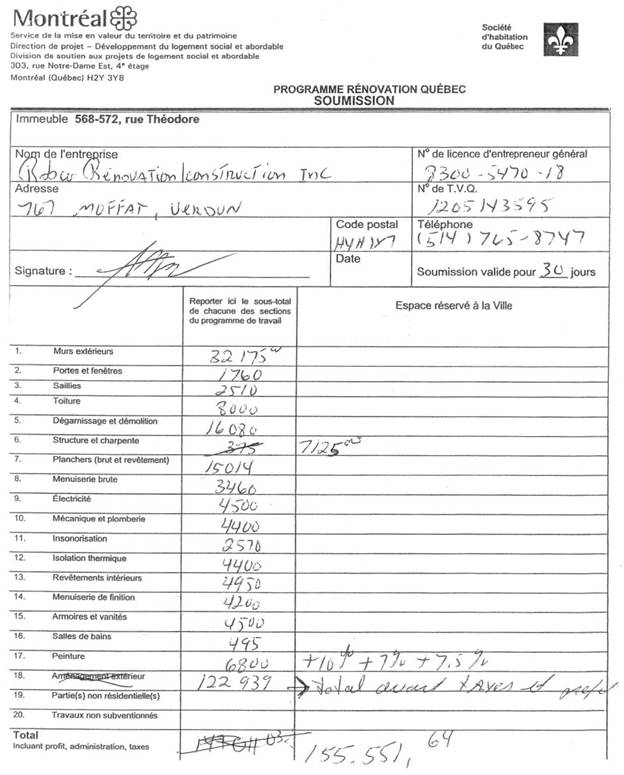 Montréal
Service de la mise en valeur du territoire et du patrimoine
Direction de projet – Développement du logement social et abordable
Division de soutien aux projets de logement social et abordable
303, rue Notre-Dame Est, 4e étage
Montréal (Québec) H2Y 3Y8
Société
d'habitation
du Québec
PROGRAMME RÉNOVATION QUÉBEC
SOUMISSION
Immeuble 568-572, rue Théodore
Nom de l'entreprise
Rénovation/construction Inc
N° de licence d'entrepreneur général
8300-5470-18
Adresse
767 MOFFAT, VERDUN
N° de T.V.Q.
1205143595
Code postal
H4H 1Y7
Téléphone
(514) 765-8747
Signature :
Date
Soumission valide pour 30 jours
Reporter ici le sous-total
de chacune des sections
du programme de travail
Espace réservé à la Ville
1. Murs extérieurs 32 175 00
2. Portes et fenêtres 1760
3. Saillies 2510
4. Toiture 8000
5. Dégarnissage et démolition 16080
6. Structure et charpente 375 7125 00
7. Planchers (brut et revêtement) 15014
8. Menuiserie brute 3460
9. Électricité 4500
10. Mécanique et plomberie 4400
11. Insonorisation 2570
12. Isolation thermique 4400
13. Revêtements intérieurs 4950
14. Menuiserie de finition 4200
15. Armoires et vanités 4500
16. Salles de bains 495
17. Peinture 6800 +10% +7% +7.5%
18. Aménagement extérieur 122 939 → total avant taxes et
19. Partie(s) non résidentielle(s)
20. Travaux non subventionnés
Total
Incluant profit, administration, taxes
155.551, 64